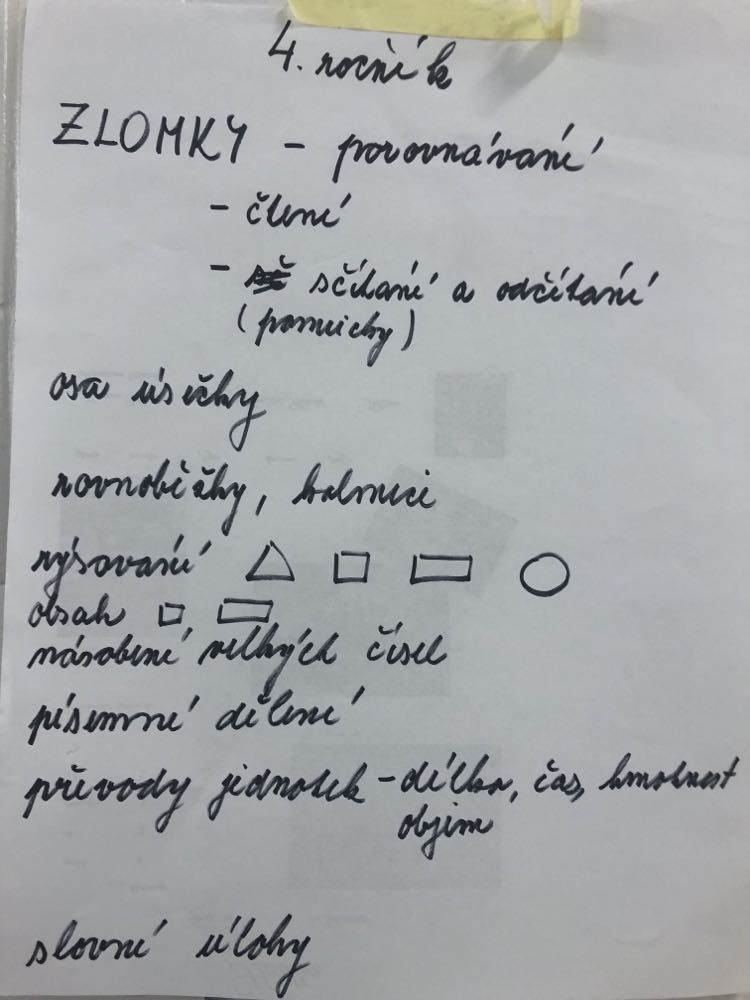 4. ročník
ZLOMKY - porovnávání
- čtení
- sčítání a odčítání
(pomůcky)
osa úsečky
rovnoběžky, kolmici
rýsování
obsah ,
násobení velkých čísel
písemné dělení
převody jednotek - délka, čas, hmotnost
objem
slovní úlohy